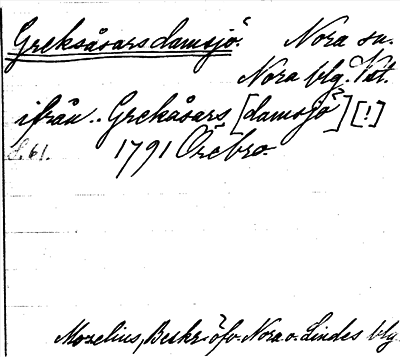 Greksåsars damsjö. Nora sn.
Nora blg. Vstl.
ifrån.. Grekåsars [damsjö] [!]
S. 61. 1791 Örebro.
Moxelius, Beskr. öfv. Nora o. Lindes blg.